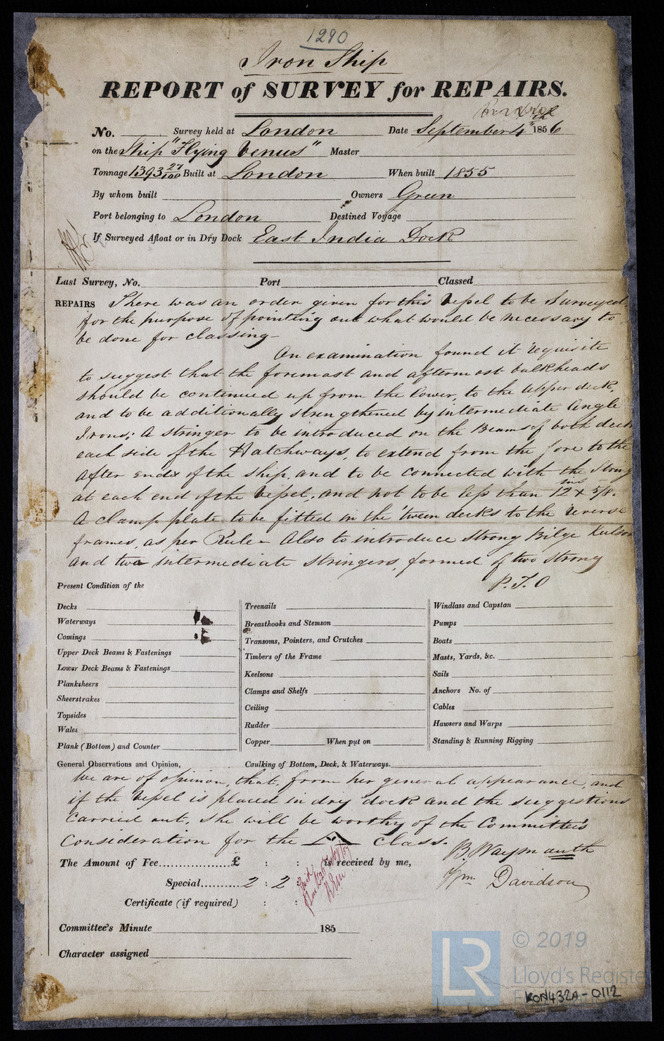 1290
Iron Ship
REPORT of SURVEY for REPAIRS.
No. Survey held at London Date September 4th 1856
on the Ship "Flying Venus" Master
Tonnage 1393 27/100 Built at London When built 1855
By whom built Owners Green
Port belonging to London Destined Voyage
If Surveyed Afloat or in Dry Dock East India Dock
Last Survey, No. Port Classed
REPAIRS There was an order given for this Vessel to be Surveyed
for the purpose of pointing out what would be necessary to
be done for classing
On examination found it requisite
to suggest that the foremost and aftermost bulkheads
should be continued up from the lower, to the upper deck
and to be additionally strengthened by intermediate Angle
Irons; A stringer to be introduced on the Beams of both deck
each side of the Hatchways, to extend from the fore to the
after ends of the ship, and to be connected with the strong
at each end of the Vessel, and not to be less than 12 x 5/8 ins
A clamp plate to be fitted in the 'tween decks to the reverse
frames, as per Rule - Also to introduce strong Bilge Keelson
and two intermediate stringers, formed of two strong
P.T.O
Present Condition of the
Decks Treenails Windlass and Capstan
Waterways Breasthooks and Stemson Pumps
Comings Transoms, Pointers, and Crutches Boats
Upper Deck Beams & Fastenings Timbers of the Frame Masts, Yards, &c.
Lower Deck Beams & Fastenings Keelsons Sails
Planksheers Clamps and Shelfs Anchors No. of
Sheerstrakes Ceiling Cables
Topsides Rudder Hawsers and Warps
Wales Copper When put on Standing & Running Rigging
Plank (Bottom) and Counter
General Observations and Opinion, Caulking of Bottom, Deck, & Waterways.
We are of opinion, that, from her general appearance, and
if the Vessel is placed in dry dock and the suggestions
carried out, she will be worthy of the Committee's
Consideration for the class.
The Amount of Fee..........£ : : is received by me, B. Waymouth
Special..........2 : 2 : Wm Davidson
Certificate (if required) : :
Committee's Minute 185
Character assigned
LR © 2019
Lloyd's Register
KON432A-0112